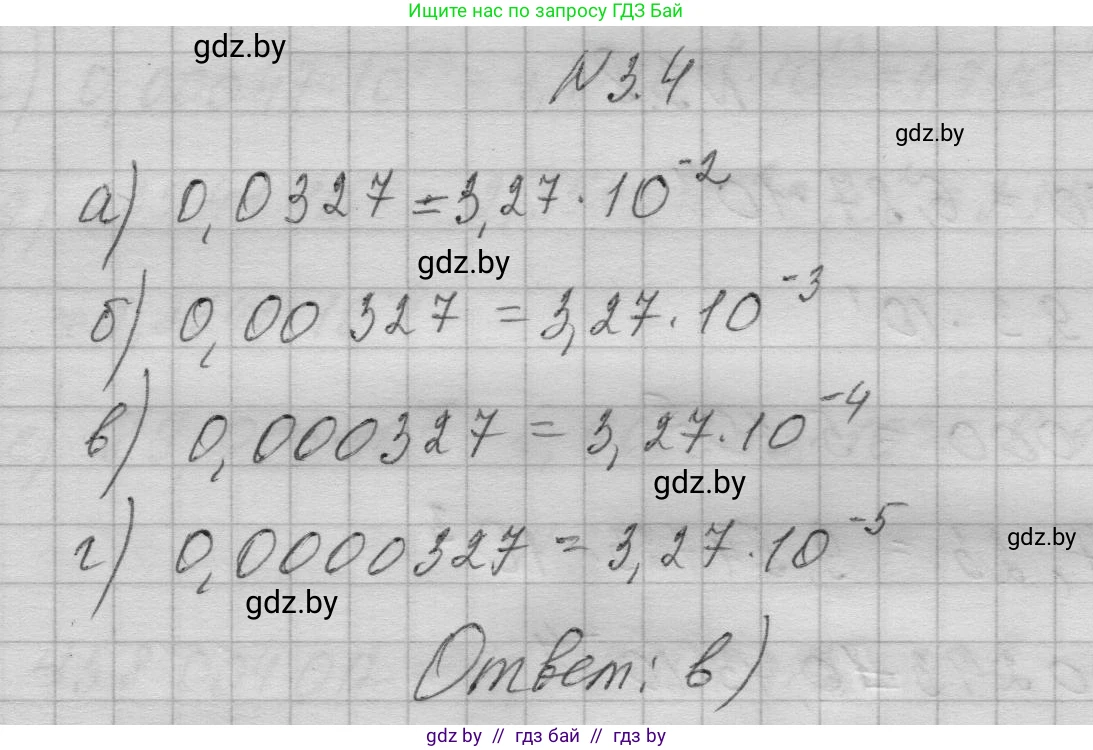 Ищите нас по запросу ГДЗ Бай
gdz.by
N 3.4
gdz.by
а) 0,0327 = 3,27 · 10⁻²
gdz.by
б) 0,00327 = 3,27 · 10⁻³
в) 0,000327 = 3,27 · 10⁻⁴
gdz.by
г) 0,0000327 = 3,27 · 10⁻⁵
gdz.by
gdz.by
Ответ: в)
gdz.by // гдз бай // гдз by